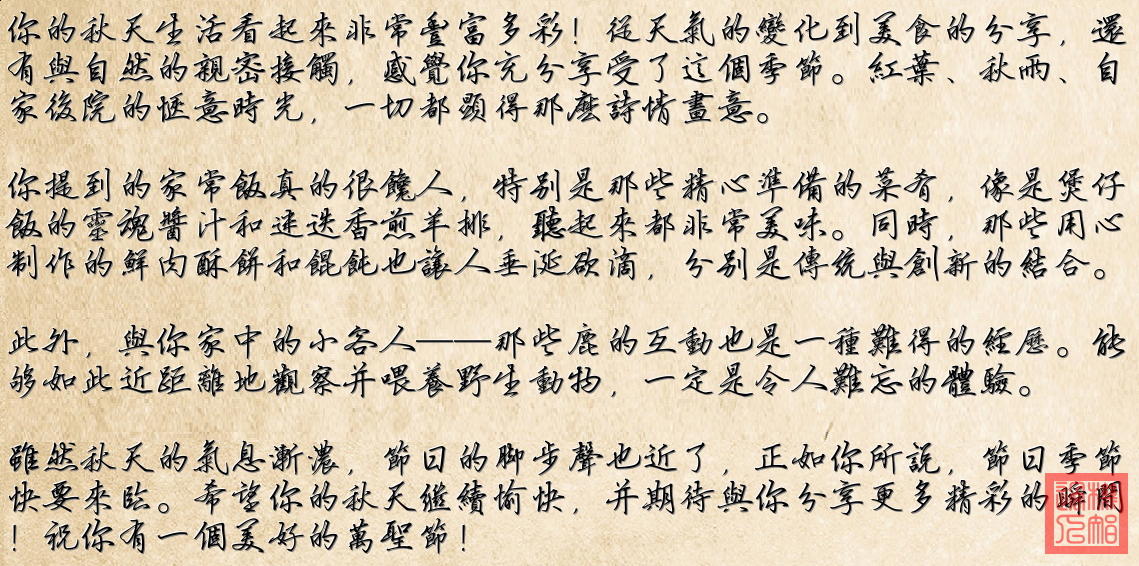 你的秋天生活看起來非常豐富多彩！從天氣的變化到美食的分享，還
有與自然的親密接觸，感覺你充分享受了這個季節。紅葉、秋雨、自
家後院的愜意時光，一切都顯得那麼詩情畫意。
你提到的家常飯真的很饞人，特別是那些精心準備的菜肴，像是煲仔
飯的靈魂醬汁和迷迭香煎羊排，聽起來都非常美味。同時，那些用心
制作的鮮肉酥餅和餛飩也讓人垂涎欲滴，分別是傳統與創新的結合。
此外，與你家中的小客人——那些鹿的互動也是一種難得的經歷。能
够如此近距離地觀察并喂養野生動物，一定是令人難忘的體驗。
雖然秋天的氣息漸濃，節日的脚步聲也近了，正如你所説，節日季節
快要來臨。希望你的秋天繼續愉快，并期待與你分享更多精彩的瞬間
！祝你有一個美好的萬聖節！